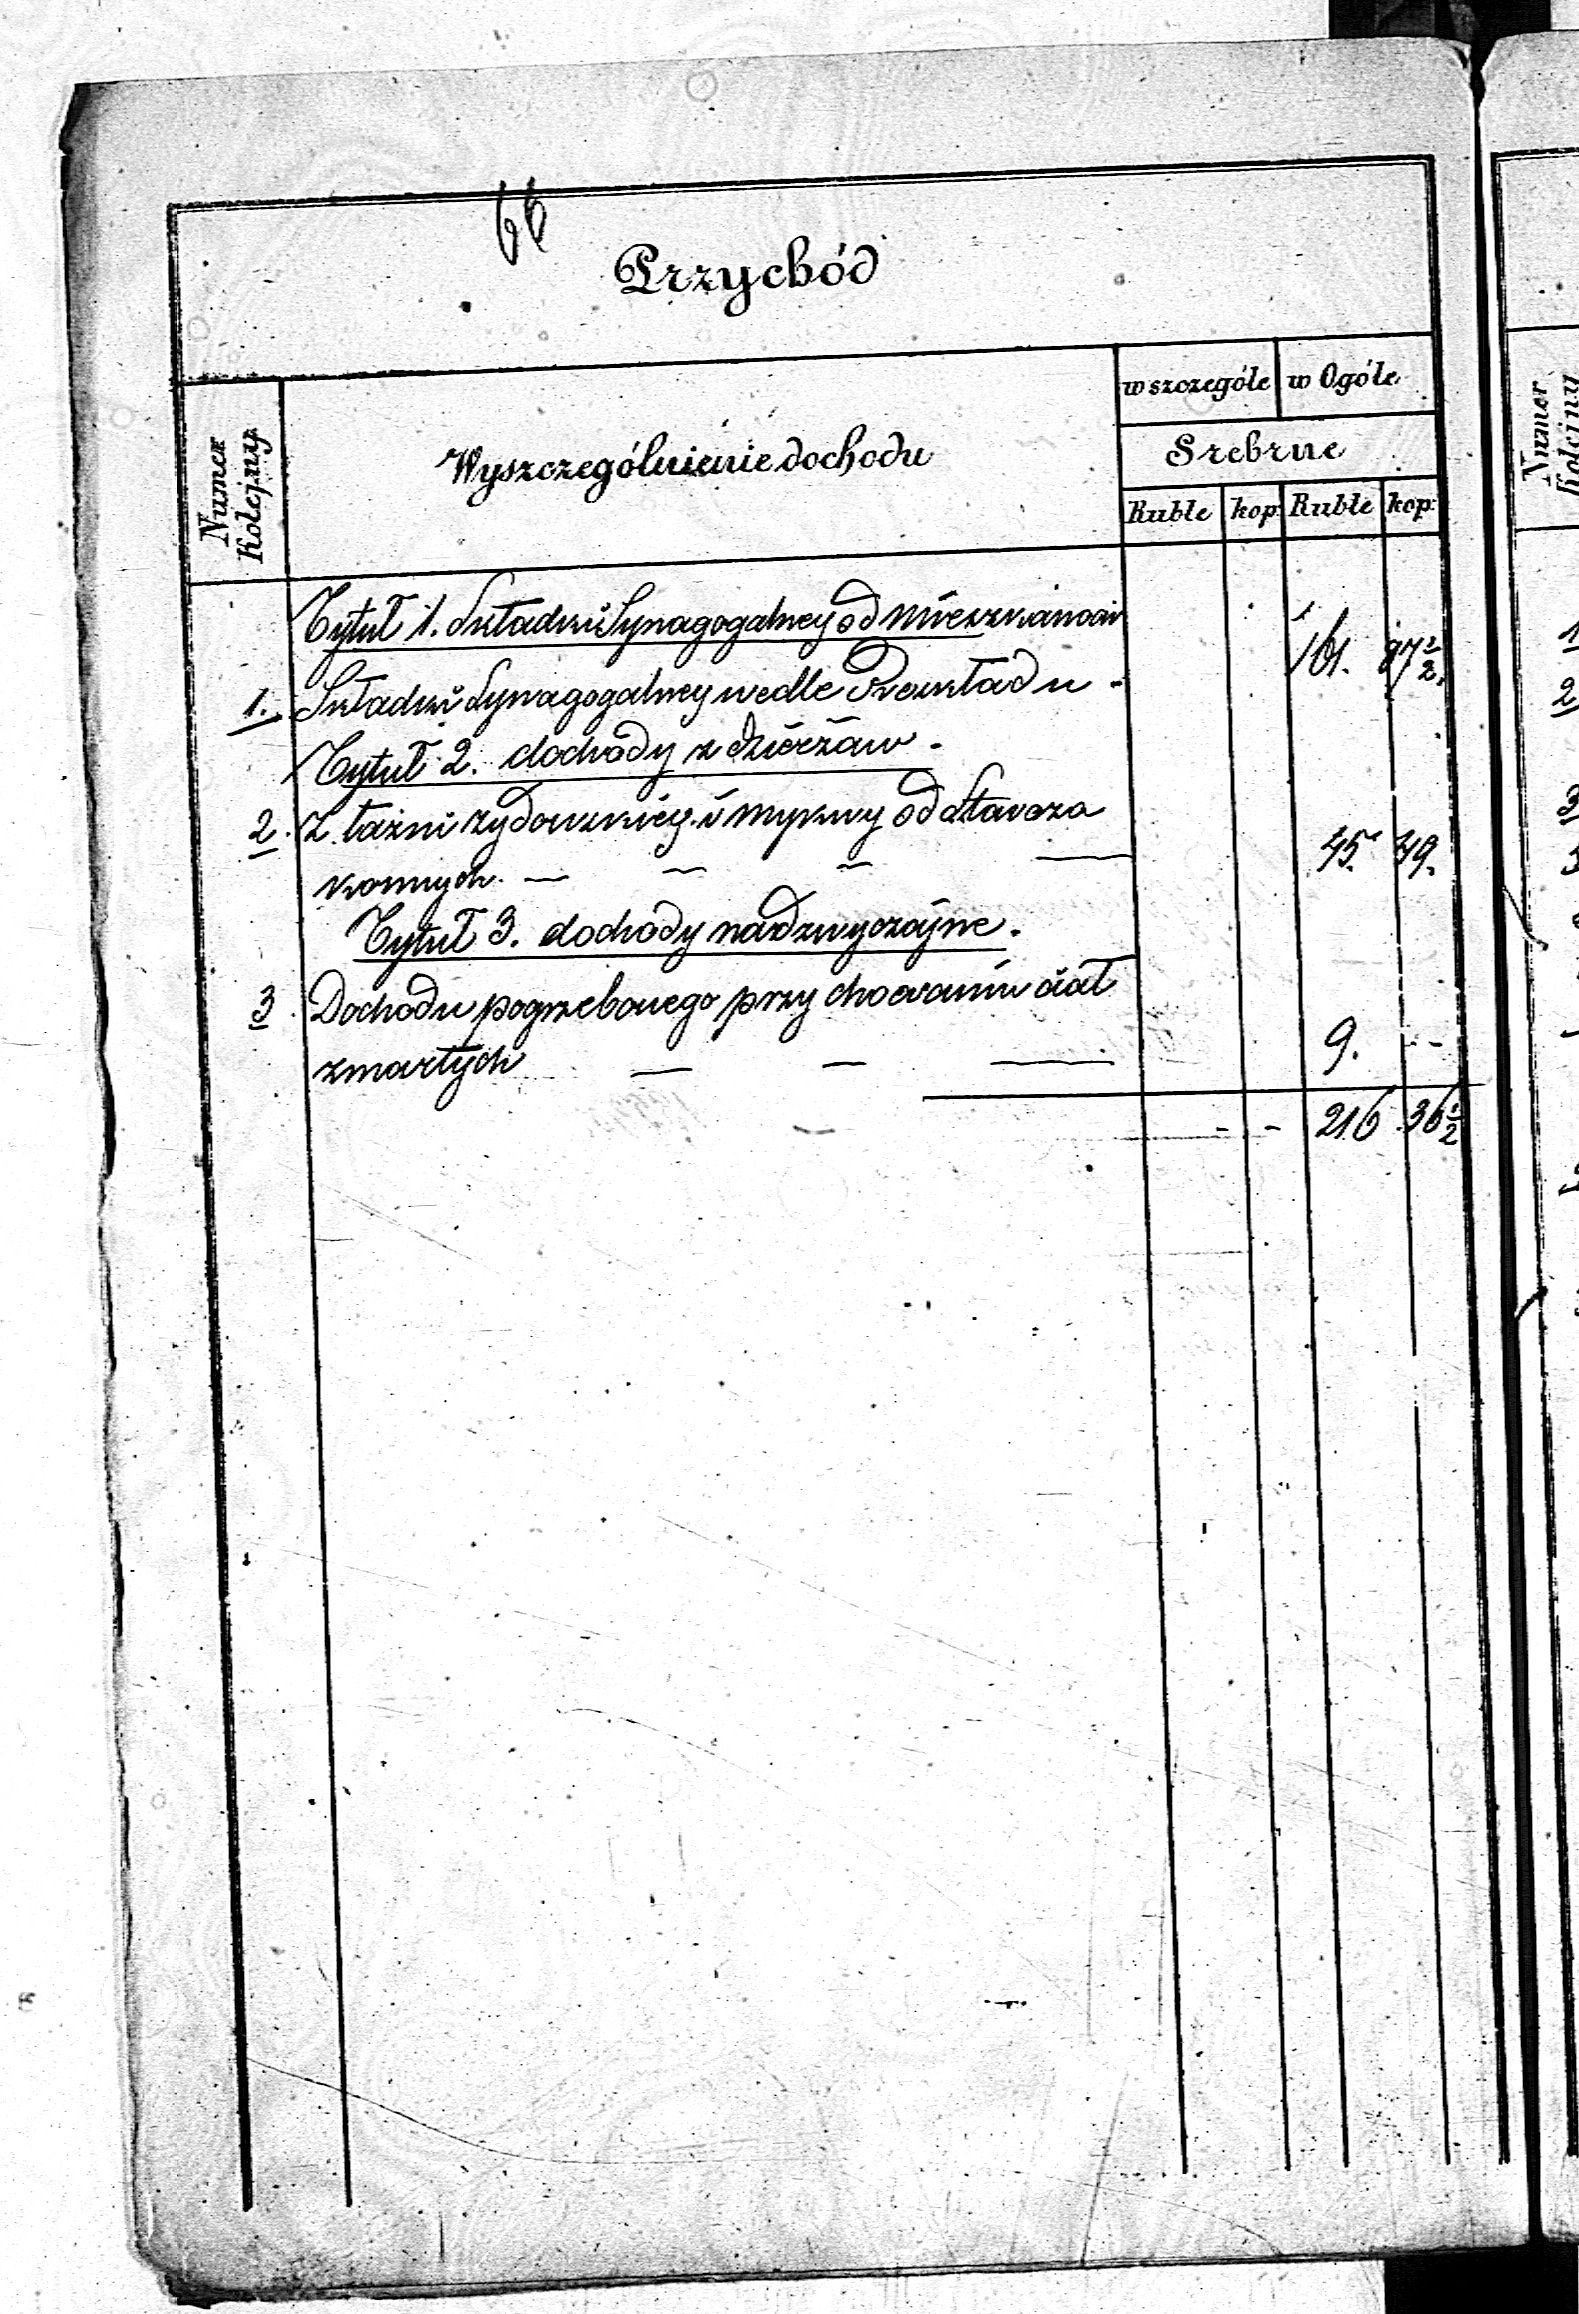 66
Przychód
Numer
Kolejny
Wyszczególnienie dochodu
w szczególe
w Ogóle
Srebrne
Ruble
kop:
Ruble
kop:
Tytuł 1. Składki Synagogalney od mieszkańców
1. Składki Synagogalney wedle Rozkładu -
161. 87 1/2.
Tytuł 2. dochody z dzierżaw.
2. Z łaźni żydowskiéy i mykwy od Staroza
konnych. — — — —
45. 49.
Tytuł 3. dochody nadzwyczajne.
3. Dochodu pogrzebowego przy chowaniu ciał
zmarłych — — —
9. - -
- - 216 36 1/2
Numer
Kolejny
1
2
3